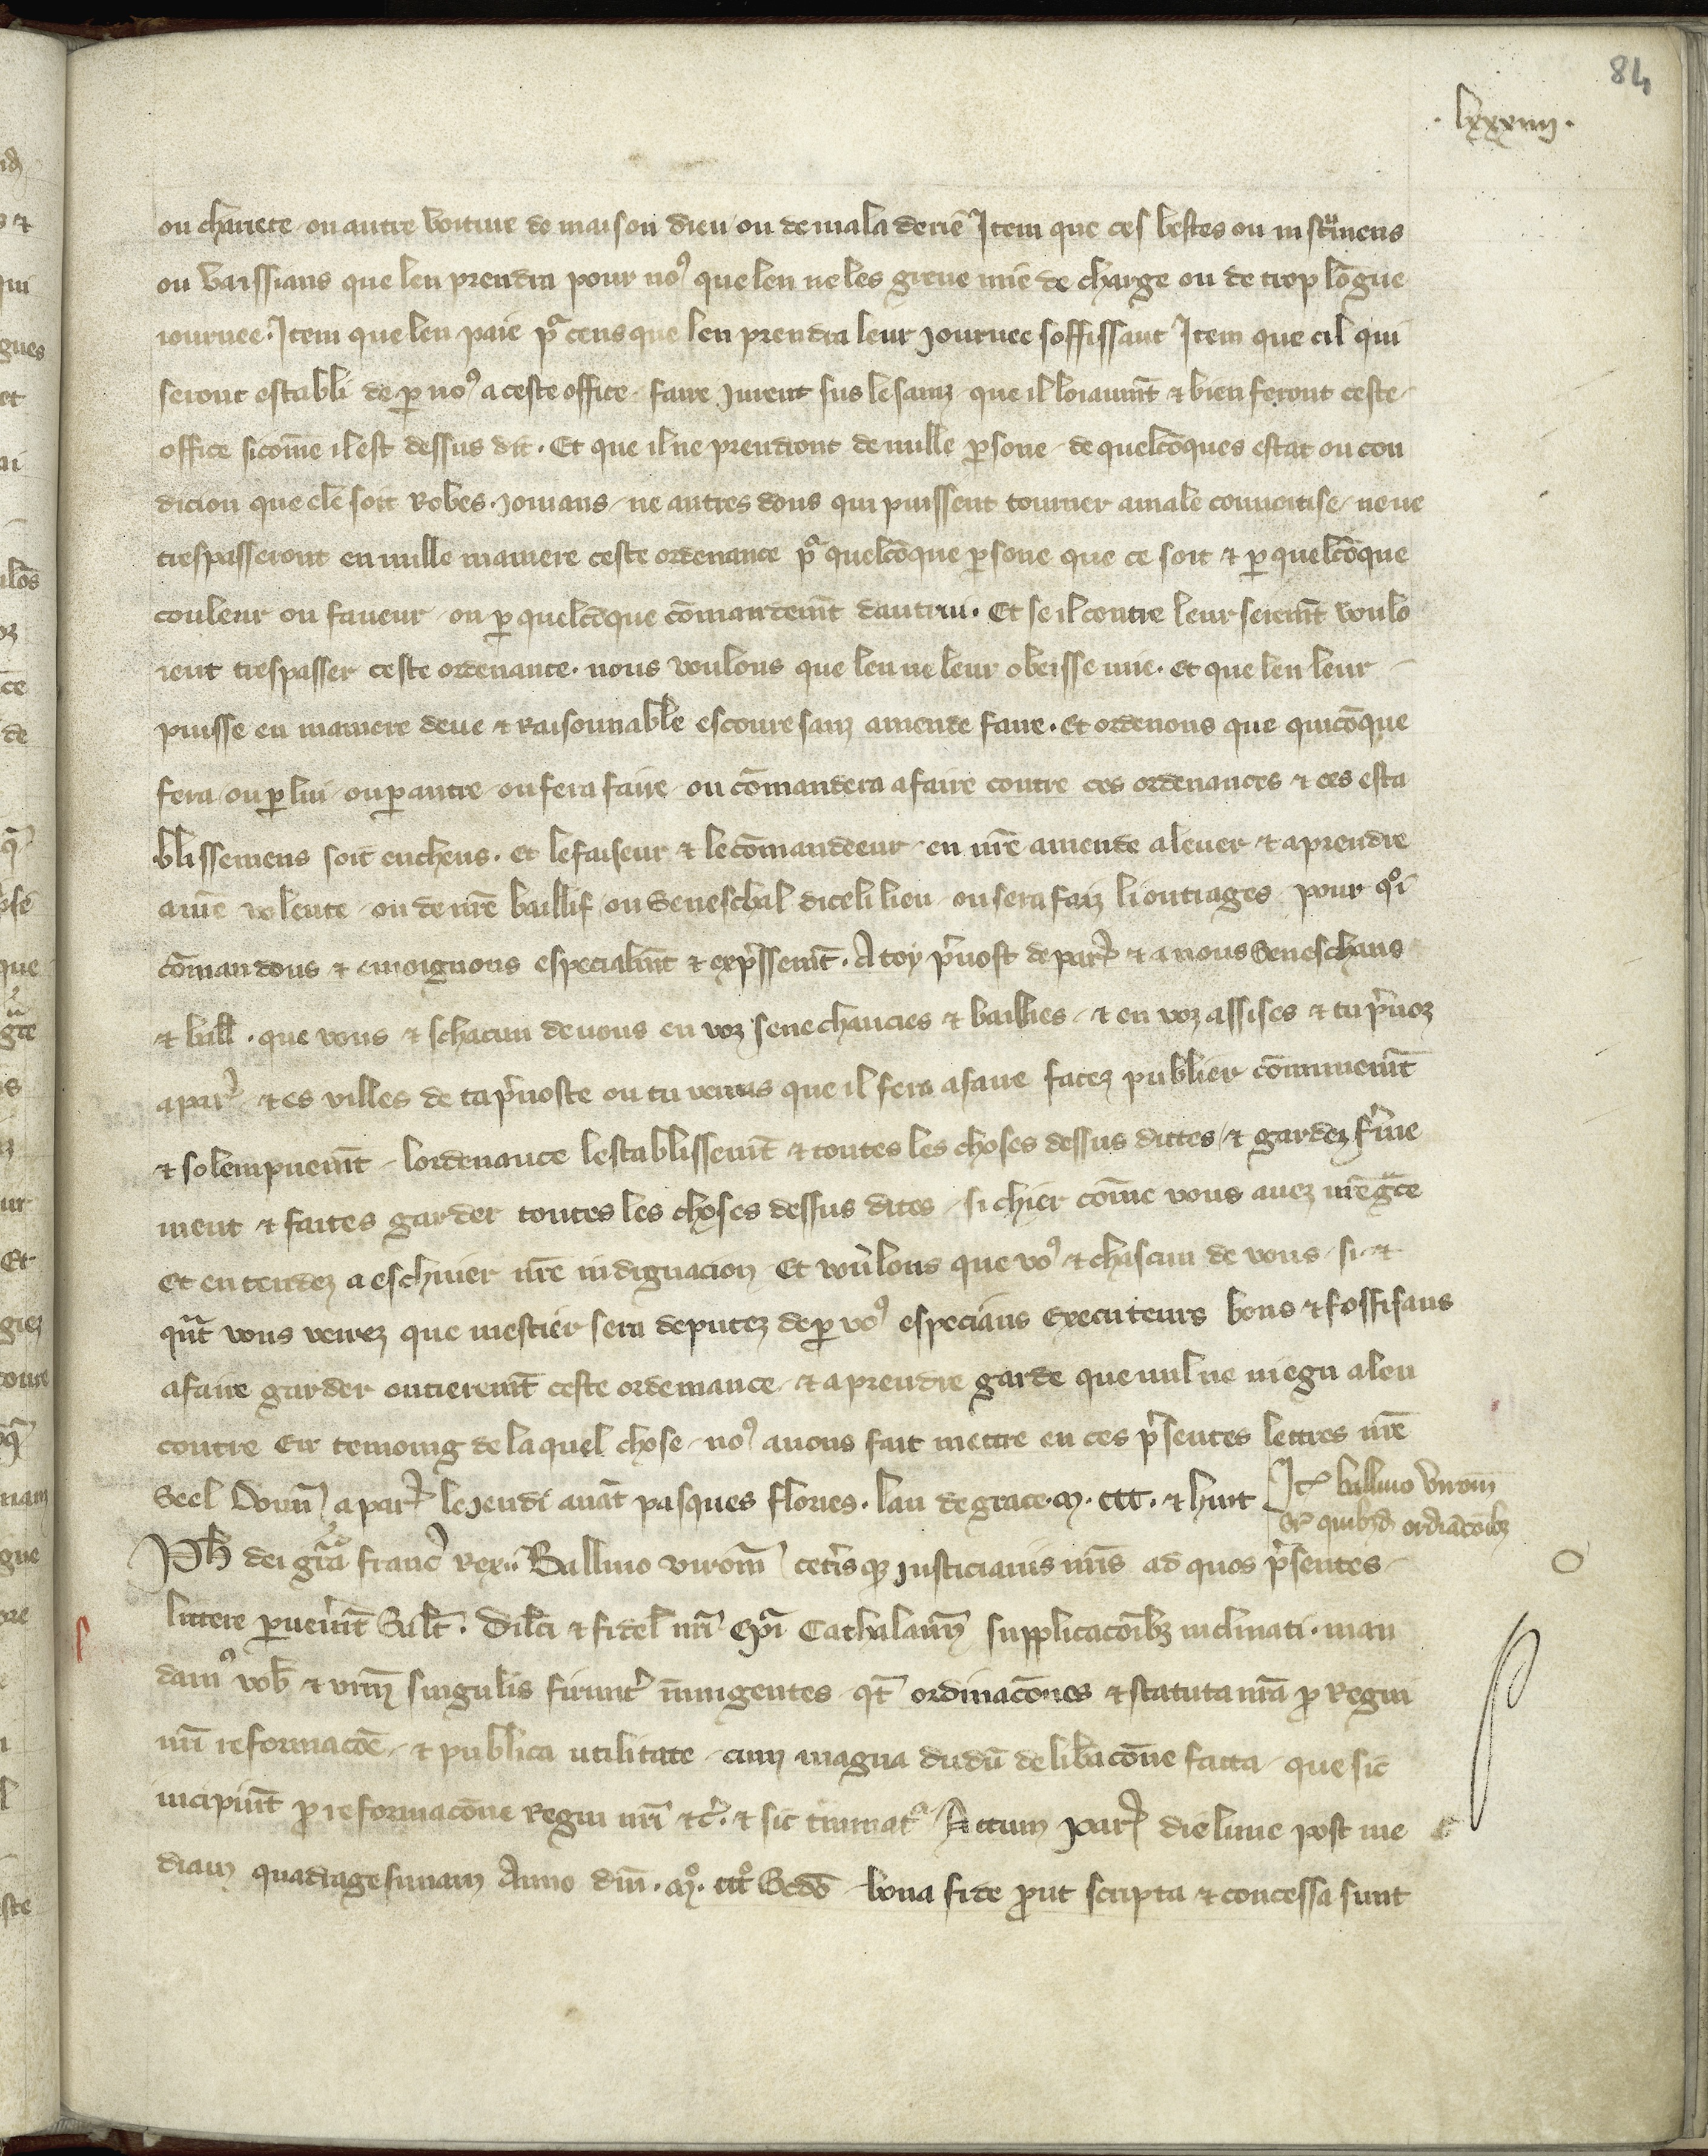 84
.lxxxiiii.
ou charrete ou autre voiture de maison dieu ou de maladerie Item que ces bestes ou instrumens
ou vaissiaus que len prendra pour no9 que len ne les grieue mie de charge ou de trop lōgue
iournee. Item que len paie pͣ ceus que len prendra leur journee soffissant Item que cil qui
seront establi de ꝑ no9 a ceste office faire jurent sus le sainz que il loiaumt̄ & bien feront ceste
office sicōme il est dessus dit. Et que il ne prendront de nulle ꝑsone de quelcōques estat ou con
dicion que ele soit Robes. Joiaus ne autres dons qui puissent tourner a male couuoitise ne ne
trespasseront en nulle maniere ceste ordenance pͣ quelcōque ꝑsone que ce soit & ꝑ quelcōque
couleur ou faueur ou ꝑ quelcōque cōmandemt̄ dautrui. Et se il contre leur seremt̄ voulo
ient trespasser ceste ordenance. nous voulons que len ne leur obeisse mie. et que len leur
puisse en maniere deue & Raisonnable escoure sanz amende faire. Et ordenons que quicōque
fera ou ꝑ lui ou ꝑ autre ou fera faire ou cōmandera a faire contre ces ordenances & ces esta
blissemens soit encheus. et le faiseur & le cōmandeeur en nr̄e amende a leuer & a prendre
a nr̄e volente ou de nr̄e baillif ou Seneschal diceli lieu ou sera faiz li outrages pour qͦi
cōmandons & enioignons especialmt̄ & exp̄ssemt̄. A toy p̄uost de par̄ & a uous Seneschaus
& baill̄. que vous & schacun de uous en voz senechaucies & baillies & en voz assises & tu p̄uoz
a par̄ & es villes de ta p̄uoste ou tu verras que il sera a faire facez publier cōmunemt̄
& solempnemt̄ lordenance lestablissemt̄ & toutes les choses dessus dittes & gardez f̄me
ment & faites garder toutes les choses dessus dites si chier cōme vous auez nr̄e gͣce
et entendez a eschiuer nr̄e indignacion Et voulons que vo9 & chascun de vous si &
qn̄t vous verrez que mestier sera deputez de ꝑ vo9 especiaus executeurs bons & soffisans
a faire garder entieremt̄ ceste ordenance & a prendre garde que nul ne niegn a leu
contre En temoing de laquel chose no9 auons fait mettre en ces p̄sentes lettres nr̄e
Seel Donn̄ a par̄ le jeudi auāt pasques flories. lan de grace. M. CCC. & huit Itē ballivo Virom̄
sr̄ quibzd ordīacōibz
Ph dei gͬa franc̄ Rex Balliuo virom̄ cet̄isqꝫ justiciariis nr̄is ad quos p̄sentes
littere ꝑuen̄int Salt̄. Dilc̄i & fidel̄ nr̄i ep̄i Cathalaun̄ supplicacōibꝫ inclinati. man
dam9 vob̄ & vr̄m singulis firmit̄ iniungentes qt̄ ordinacōnes & statuta nr̄a ꝓ Regni
nr̄i reformacōe & publica utilitate cum magna dudū delib̄acōne facta que sic
incipiūt ꝓ reformacōne Regni nr̄i &c̄. & sic t̄minatᷣ Actum par̄ die lune post me
diam quadragesimam Anno dn̄i. Mͦ. CCCͦ Scdō bona fide ꝓut scripta & concessa sunt